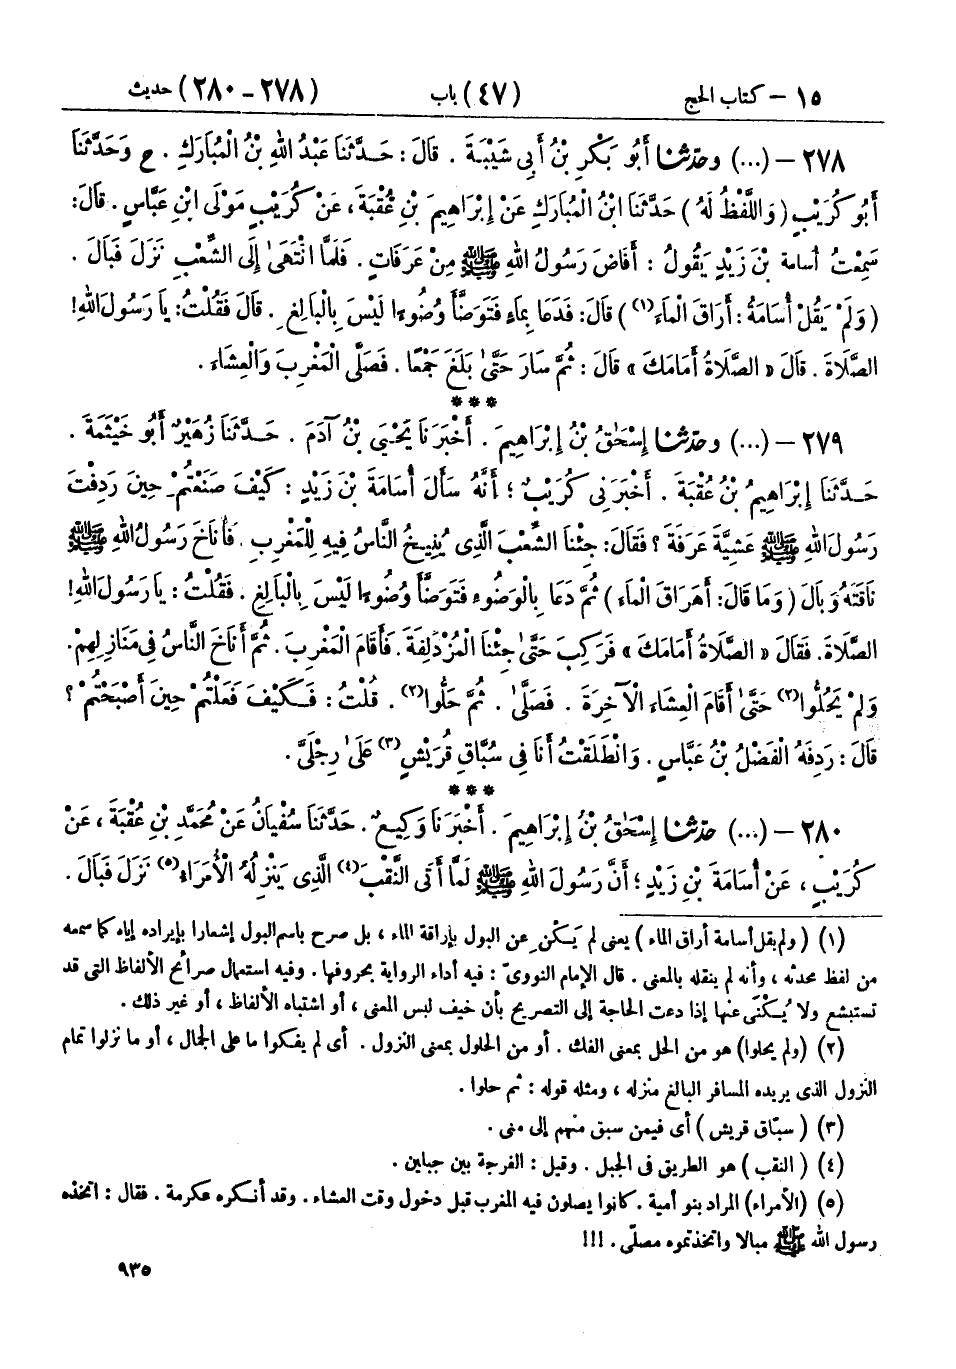 ١٥ – كتاب الحج (٤٧) باب (٢٧٨ – ٢٨٠) حديث
٢٧٨ – (...) وحدّثنا أَبُو بَكْرِ بْنُ أَبِي شَيْبَةَ . قَالَ : حَدَّثَنَا عَبْدُ اللهِ بْنُ الْمُبَارَكِ . ح وَحَدَّثَنَا
أَبُو كُرَيْبٍ (وَاللَّفْظُ لَهُ) حَدَّثَنَا ابْنُ الْمُبَارَكِ عَنْ إِبْرَاهِيمَ بْنِ عُقْبَةَ ، عَنْ كُرَيْبٍ مَوْلَى ابْنِ عَبَّاسٍ . قَالَ:
سَمِعْتُ أُسامة بْنَ زَيْدٍ يَقُولُ : أَفَاضَ رَسُولُ اللهِ ﷺ مِنْ عَرَفَاتٍ . فَلَمَّا انْتَهَىٰ إِلَى الشِّعْبِ نَزَلَ فَبَالَ .
(وَلَمْ يَقُلْ أُسَامَةُ : أَرَاقَ الْمَاءَ(١)) قَالَ: فَدَعَا بِمَاءٍ فَتَوَضَّأَ وُضُوءًا لَيْسَ بِالْبَالِغِ . قَالَ فَقُلْتُ: يا رَسُولَ اللهِ!
الصَّلَاةَ . قَالَ « الصَّلَاةُ أَمَامَكَ » قَالَ : ثُمَّ سَارَ حَتَّىٰ بَلَغَ جَمْعًا . فَصَلَّى الْمَغْرِبَ وَالْعِشَاءَ .
***
٢٧٩ – (...) وحدّثنا إِسْحَٰقُ بْنُ إِبْرَاهِيمَ . أَخْبَرَنَا يَحْيَى بْنُ آدَمَ . حَدَّثَنَا زُهَيْرٌ أَبُو خَيْثَمَةَ .
حَدَّثَنَا إِبْرَاهِيمُ بْنُ عُقْبَةَ . أَخْبَرَنِي كُرَيْبٌ ؛ أَنَّهُ سَأَلَ أُسَامَةَ بْنَ زَيْدٍ : كَيْفَ صَنَعْتُمْ حِينَ رَدِفْتَ
رَسُولَ اللهِ ﷺ عَشِيَّةَ عَرَفَةَ ؟ فَقَالَ: جِئْنَا الشِّعْبَ الَّذِي يُنِيخُ النَّاسُ فِيهِ لِلْمَغْرِبِ . فَأَنَاخَ رَسُولُ اللهِ ﷺ
نَاقَتَهُ وَبَالَ (وَمَا قَالَ: أَهَرَاقَ الْمَاءَ) ثُمَّ دَعَا بِالْوَضُوءِ فَتَوَضَّأَ وُضُوءًا لَيْسَ بِالْبَالِغِ . فَقُلْتُ : يا رَسُولَ اللهِ!
الصَّلَاةَ. فَقَالَ « الصَّلَاةُ أَمَامَكَ » فَرَكِبَ حَتَّىٰ جِئْنَا الْمُزْدَلِفَةَ . فَأَقَامَ الْمَغْرِبَ . ثُمَّ أَنَاخَ النَّاسُ فِي مَنَازِلِهِمْ.
وَلَمْ يَحُلُّوا(٢) حَتَّىٰ أَقَامَ الْعِشَاءَ الْآخِرَةَ . فَصَلَّىٰ . ثُمَّ حَلُّوا(٢) . قُلْتُ : فَكَيْفَ فَعَلْتُمْ حِينَ أَصْبَحْتُمْ ؟
قَالَ : رَدِفَهُ الْفَضْلُ بْنُ عَبَّاسٍ . وَانْطَلَقْتُ أَنَا فِي سُبَّاقِ قُرَيْشٍ(٣) عَلَىٰ رِجْلَيَّ .
***
٢٨٠ – (...) حدّثنا إِسْحَٰقُ بْنُ إِبْرَاهِيمَ . أَخْبَرَنَا وَكِيعٌ . حَدَّثَنَا سُفْيَانُ عَنْ مُحَمَّدِ بْنِ عُقْبَةَ ، عَنْ
كُرَيْبٍ ، عَنْ أُسَامَةَ بْنِ زَيْدٍ ؛ أَنَّ رَسُولَ اللهِ ﷺ لَمَّا أَتَى النَّقْبَ(٤) الَّذِي يَنْزِلُهُ الْأُمَرَاءُ(٥) نَزَلَ فَبَالَ .
(١) (ولم يقل أسامة أراق الماء) يعنى لم يَكْنِ عن البول بإراقة الماء ، بل صرح باسم البول إشعارا بإيراده إياه كما سمعه
من لفظ محدثه ، وأنه لم ينقله بالمعنى . قال الإمام النووىّ : فيه أداء الرواية بحروفها. وفيه استعمال صرائح الألفاظ التى قد
تستبشع ولا يُكْنَى عنها إذا دعت الحاجة إلى التصريح بأن خيف لبس المعنى ، أو اشتباه الألفاظ ، أو غير ذلك .
(٢) (ولم يحلوا) هو من الحل بمعنى الفك . أو من الحلول بمعنى النزول . أى لم يفكوا ما على الجمال ، أو ما نزلوا تمام
النزول الذى يريده المسافر البالغ منزله ، ومثله قوله : ثم حلوا .
(٣) (سبّاق قريش) أى فيمن سبق منهم إلى منى .
(٤) (النقب) هو الطريق فى الجبل . وقيل : الفرجة بين جبلين .
(٥) (الأمراء) المراد بنو أمية . كانوا يصلون فيه المغرب قبل دخول وقت العشاء . وقد أنكره عكرمة . فقال : اتخذه
رسول الله ﷺ مبالا واتخذتموه مصلّى . !!!
٩٣٥